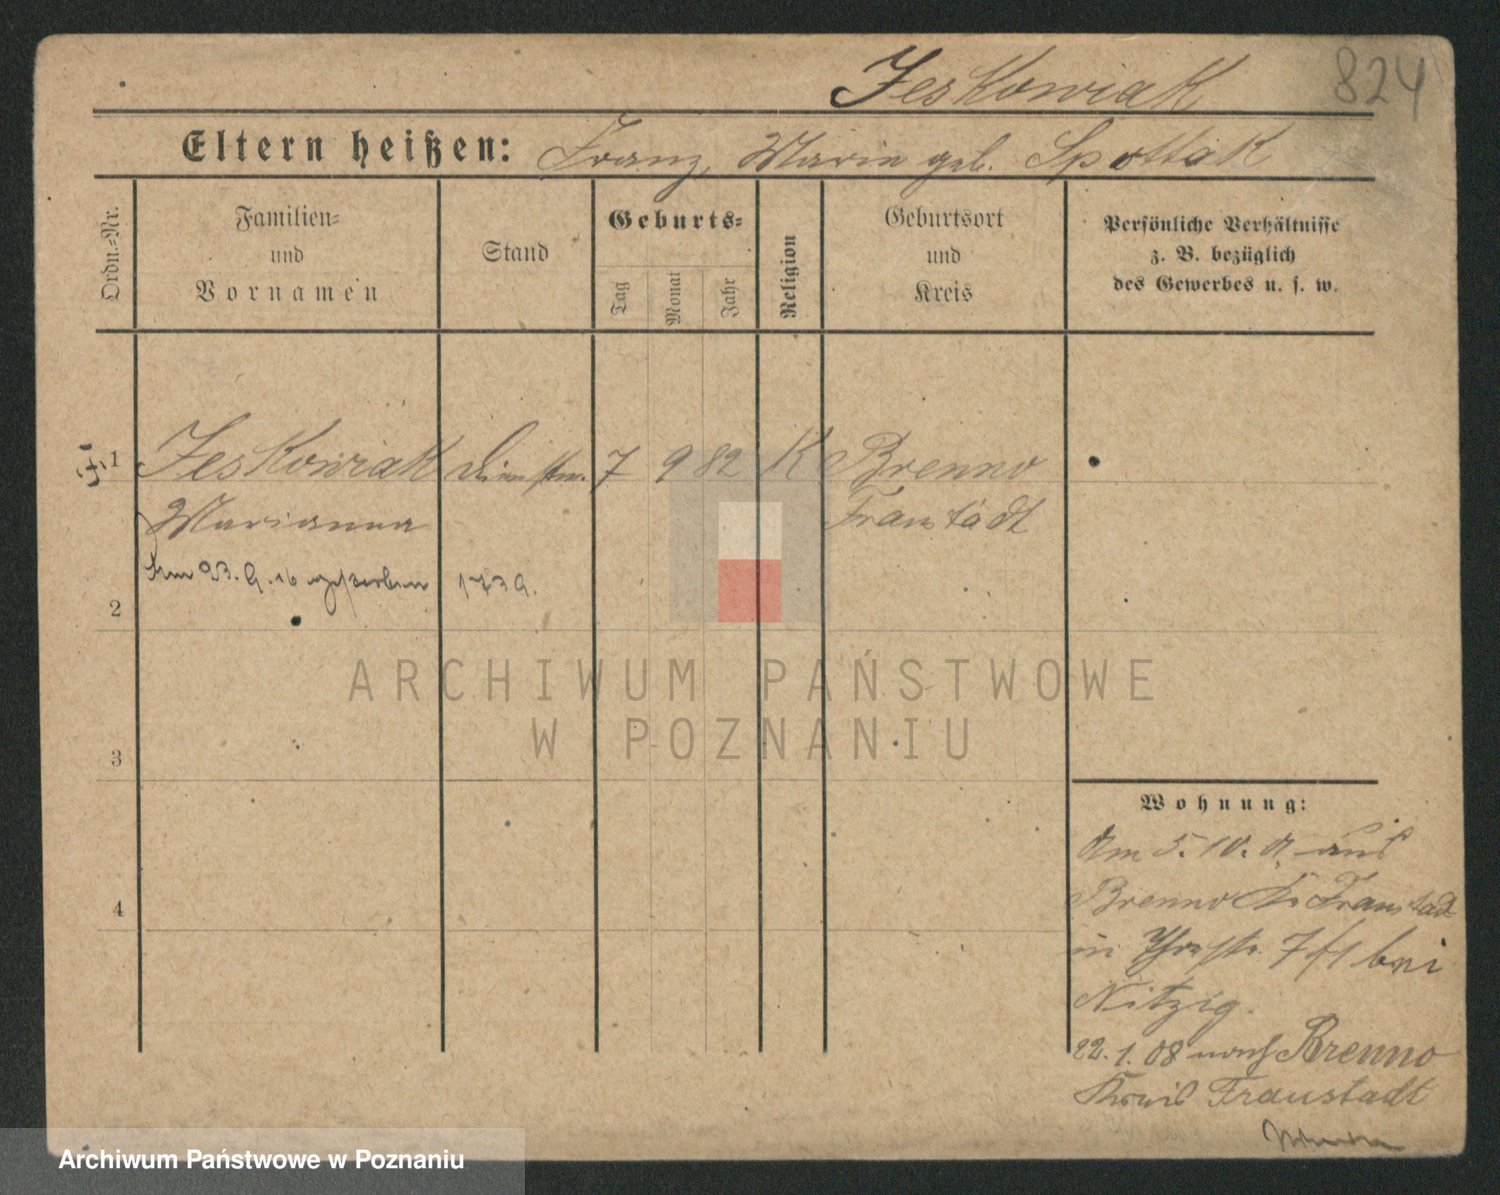 824
Jeskowiak
Eltern heißen: Franz, Marie geb. Spottak
Ordn.=Nr.
Familien=
und
Vornamen
Stand
Geburts=
Tag
Monat
Jahr
Religion
Geburtsort
und
Kreis
Persönliche Verhältnisse
z. B. bezüglich
des Gewerbes u. s. w.
1 Jeskowiak 7 9 82 K Brenno
Marianna Fraustadt
Am 23. 9. 16 gestorben 1739.
2
3
4
Wohnung:
Am 5. 10. aus
Brenno Kr Fraustadt
in 7 bei
Nitzig.
22. 1. 08 nach Brenno
Kreis Fraustadt
ARCHIWUM PAŃSTWOWE
W POZNANIU
Archiwum Państwowe w Poznaniu